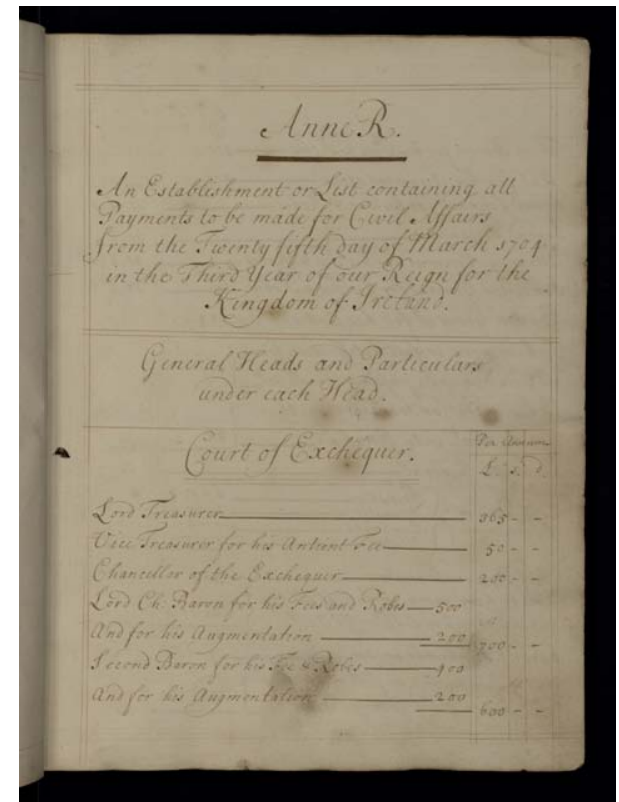 Anne R.
An Establishment or List containing all
Payments to be made for Civil Affairs
from the Twenty fifth day of March 1704
in the Third Year of our Reign for the
Kingdom of Ireland.
General Heads and Particulars
under each Head.
Per Annum
Court of Exchequer.
L. s. d.
Lord Treasurer 365 - -
Vice Treasurer for his Antient Fee 50 - -
Chancellor of the Exchequer 200 - -
Lord Ch. Baron for his Fees and Robes 500
And for his Augmentation 200 700 - -
Second Baron for his Fee & Robes 400
And for his Augmentation 200 600 - -